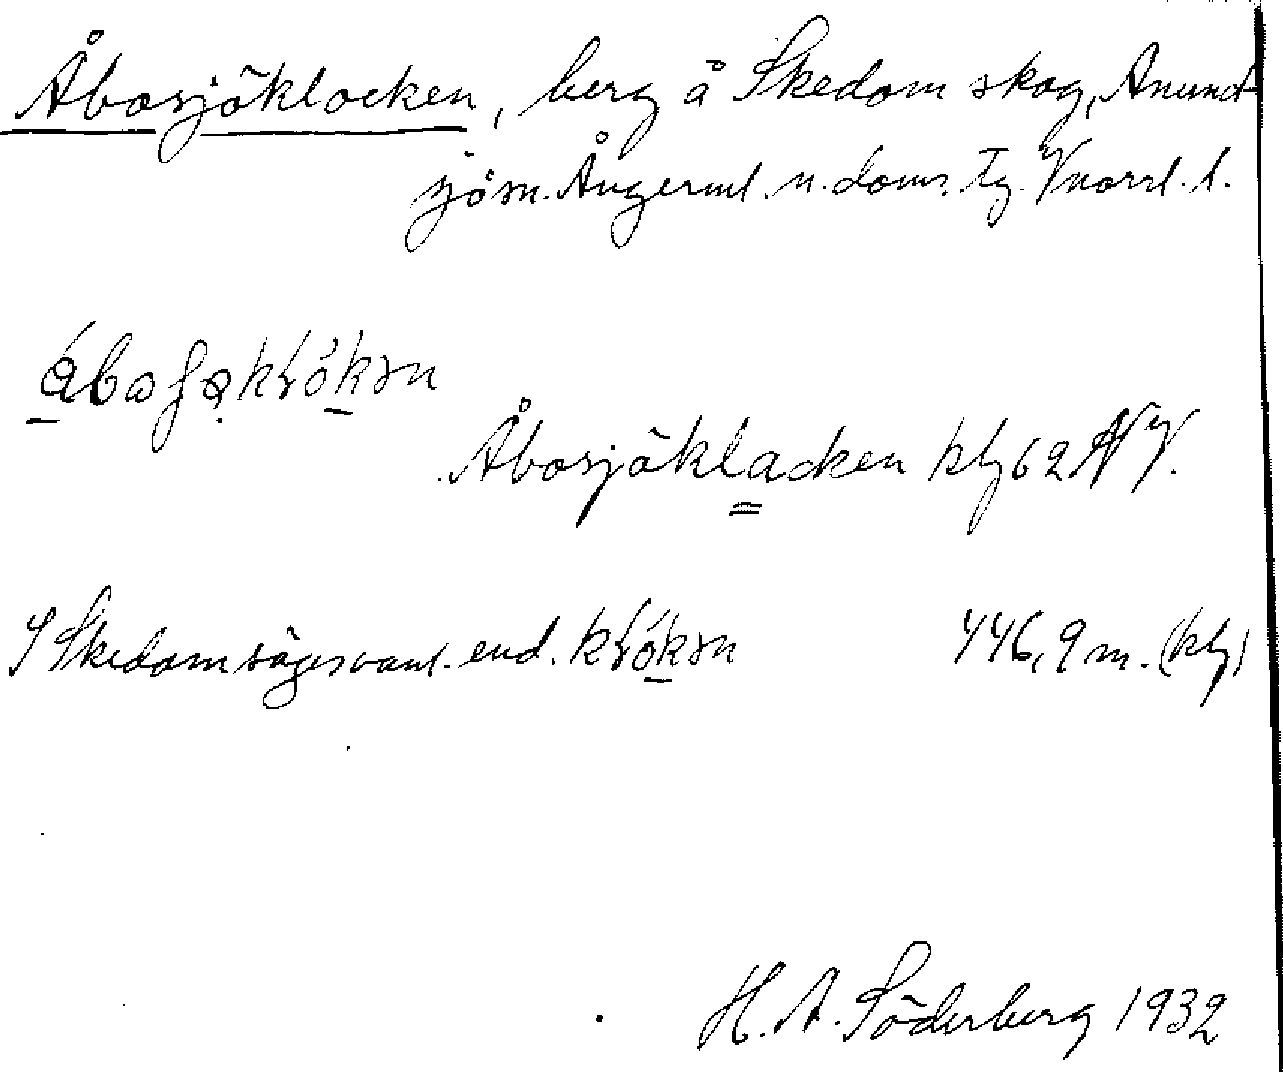 Åbosjöklocken, berg å Skedom skog, Anund-
sjö sn. Ångerml. n. doms. Tg. Vnorrl. l.
Åbosjöklacken kbl 62 NV.
I Skedom säges vanl. end. 446,9 m. (kbl)
H. A. Söderberg 1932